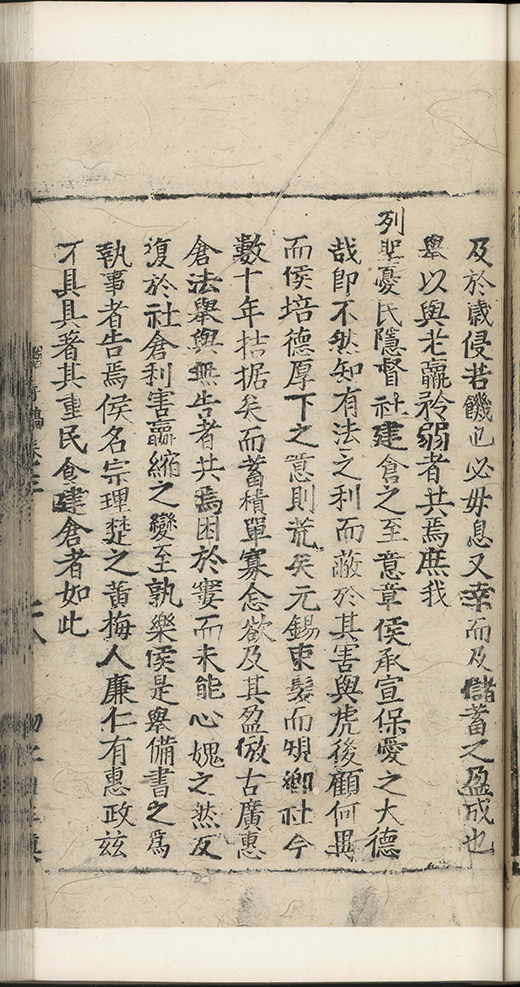 及於歲侵若饑也必毋息又幸而及儲蓄之盈成也
舉以與老羸矜弱者共焉庶我
列聖憂民隱督社建倉之至意章侯承宣保愛之大德
哉即不然知有法之利而蔽於其害與虎後顧何異
而侯培德厚下之意則荒矣元錫束髮而規鄉社今
數十年拮据矣而蓄積單寡念欲及其盈倣古廣惠
倉法舉與無告者共焉困於寠而未能心媿之然反
復於社倉利害贏縮之變至孰樂侯是舉備書之為
執事者告焉侯名宗理楚之黃梅人廉仁有惠政茲
不具具著其重民食建倉者如此